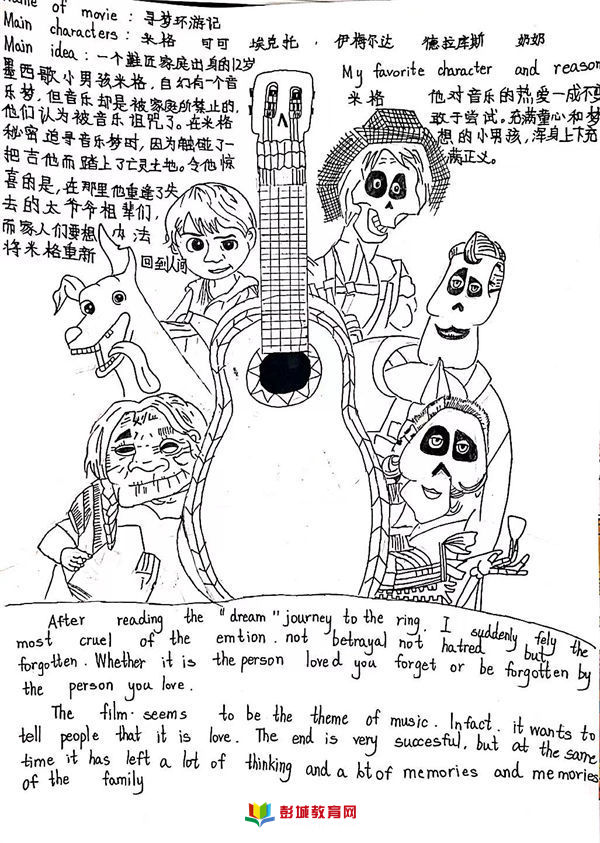 Name of movie : 寻梦环游记
Main characters : 米格 可可 埃克托 , 伊梅尔达 德拉库斯 奶奶
Main idea : 一个鞋匠家庭出身的12岁
墨西歌小男孩米格,自幼有一个音
乐梦,但音乐却是被家庭所禁止的,
他们认为被音乐诅咒了。在米格
秘密追寻音乐梦时,因为触碰了一
把吉他而踏上了亡灵土地。令他惊
喜的是,在那里他重逢了失
去的太爷爷祖辈们,
而家人们要想 法
将米格重新 回到人间
My favorite character and reason
米格 他对音乐的热爱一成不变
敢于尝试。充满童心和梦
想的小男孩,浑身上下充
满正义。
After reading the "dream" journey to the ring, I suddenly fely the
most cruel of the emtion. not betrayal not hatred but
forgotten. Whether it is the person loved you forget or be forgotten by
the person you love.
The film. seems to be the theme of music. Infact. it wants to
tell people that it is love. The end is very succesful, but at the same
time it has left a lot of thinking and a lot of memories and memories
of the family
彭城教育网